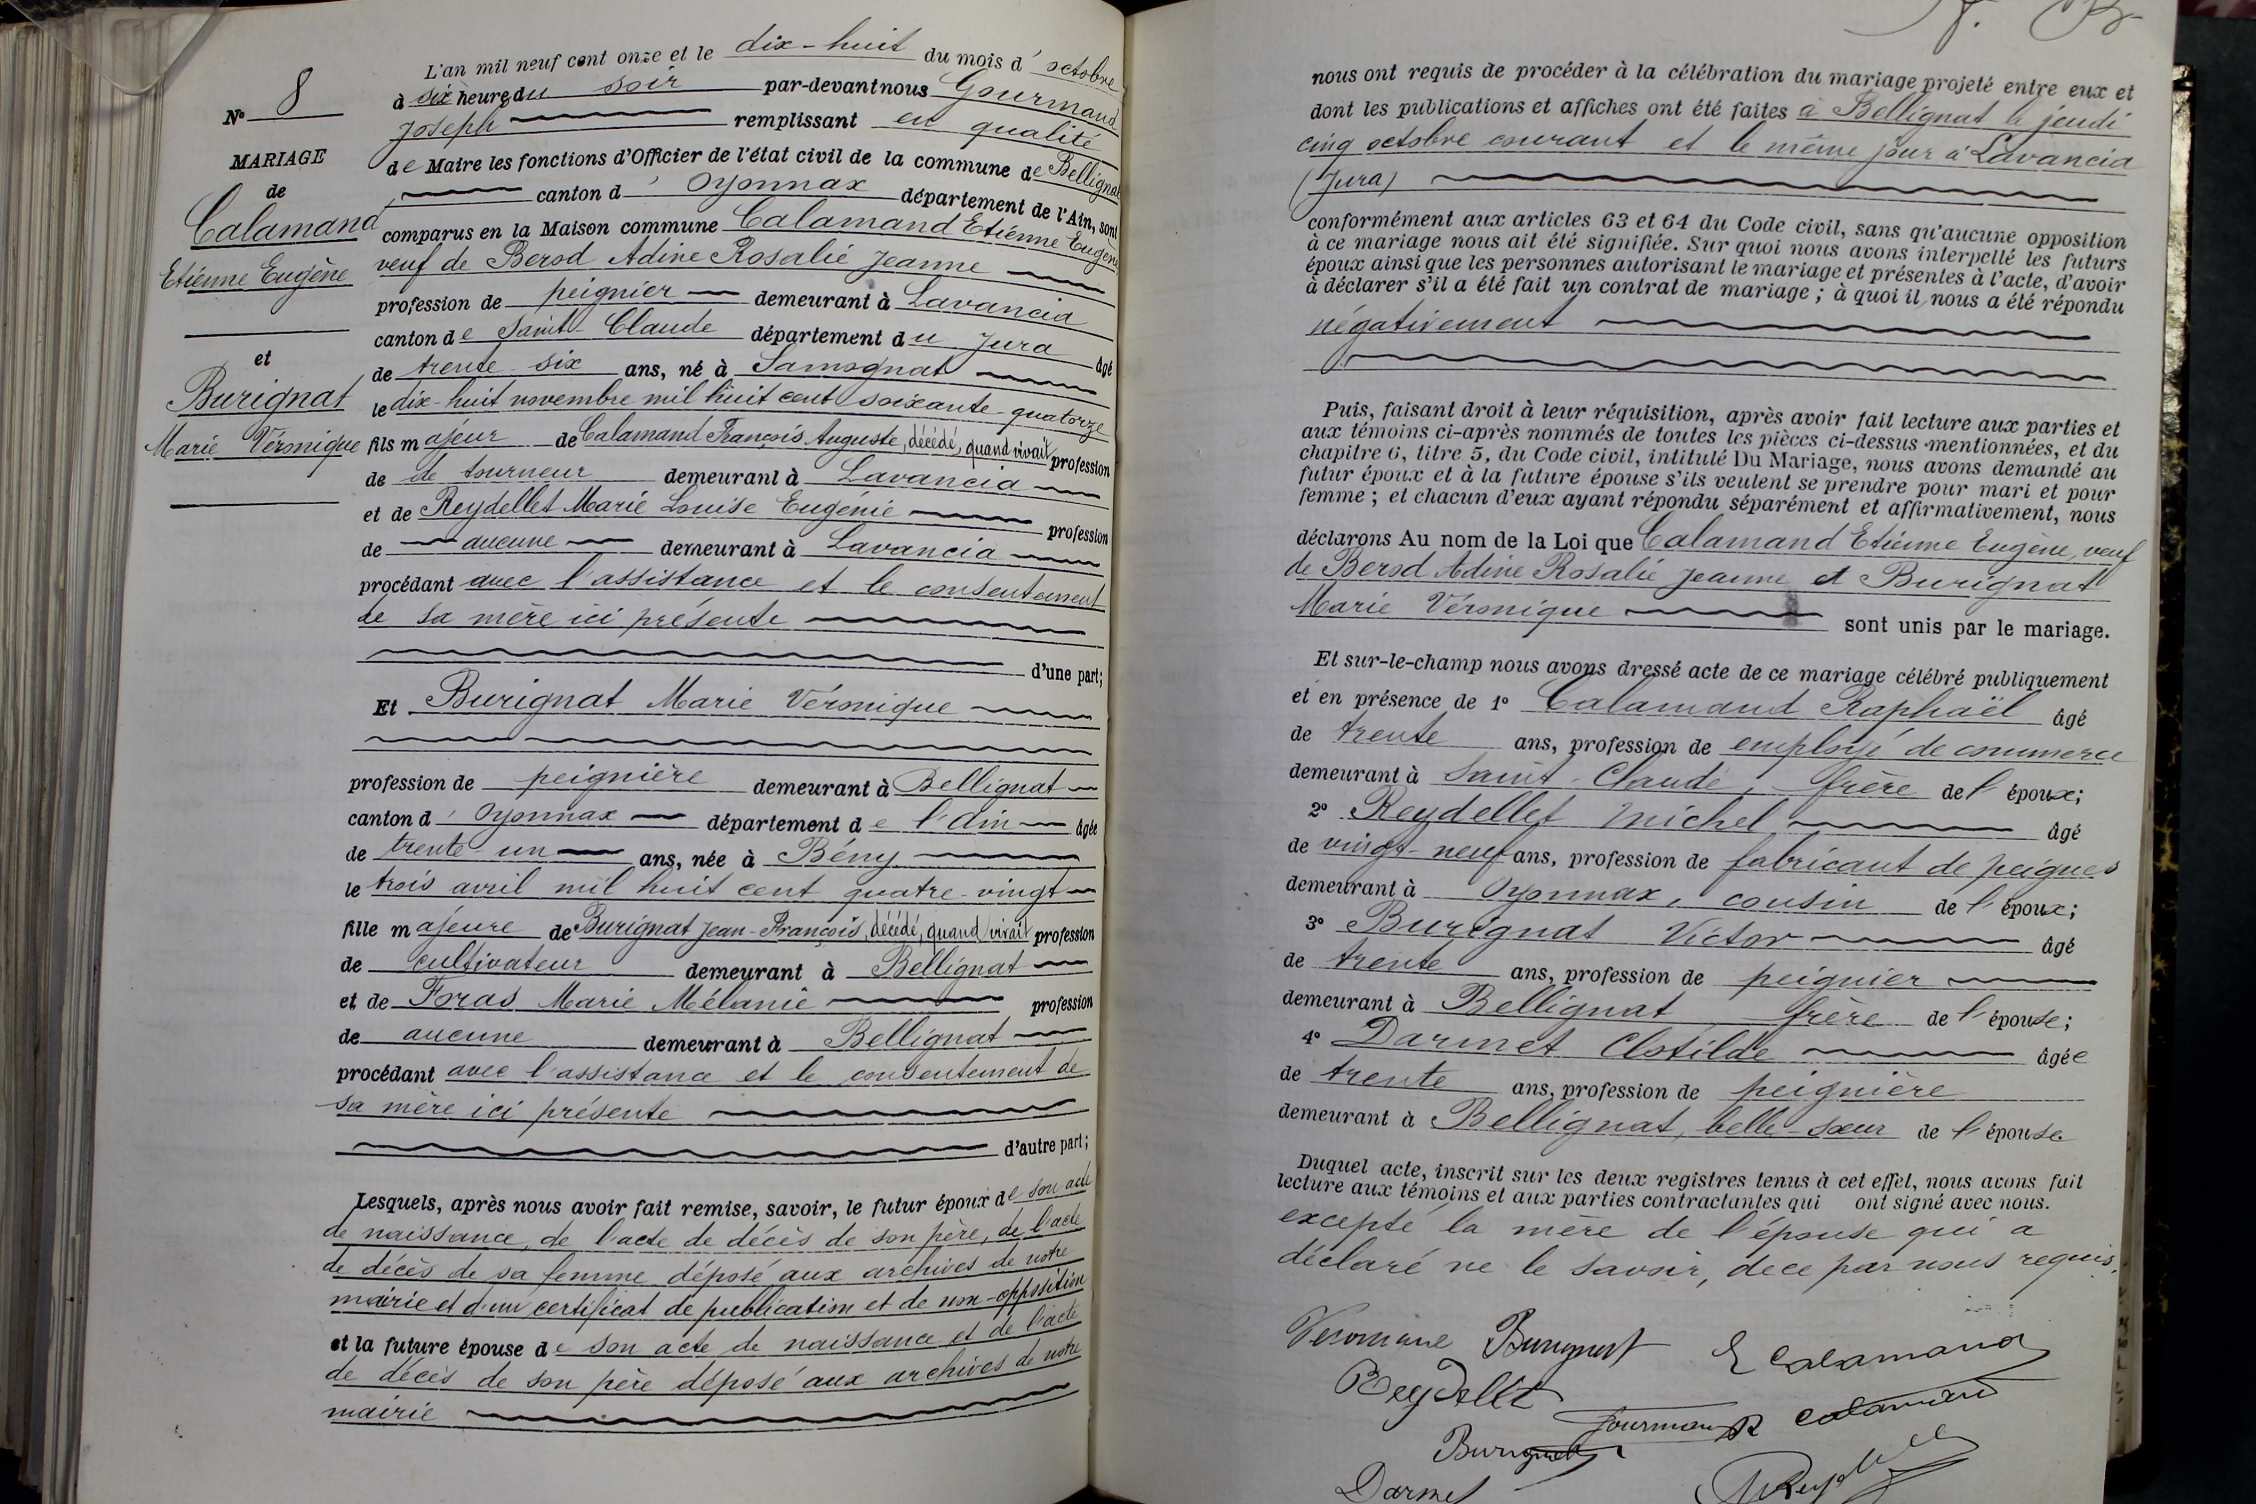 L'an mil neuf cent onze et le dix-huit du mois d'octobre
à six heures du soir par-devant nous Gourmand
Joseph remplissant en qualité
de Maire les fonctions d'Officier de l'état civil de la commune de Bellignat
canton d'Oyonnax département de l'Ain, sont
comparus en la Maison commune Calamand Etienne Eugène
veuf de Berod Adine Rosalie Jeanne
profession de peignier demeurant à Lavancia
canton de Saint-Claude département du Jura âgé
de trente six ans, né à Samognat
le dix-huit novembre mil huit cent soixante-quatorze
fils majeur de Calamand François Auguste, décédé, quand vivait profession
de de tourneur demeurant à Lavancia
et de Reydellet Marie Louise Eugénie profession
de aucune demeurant à Lavancia
procédant avec l'assistance et le consentement
de sa mère ici présente
d'une part;
Et Burignat Marie Véronique
profession de peignière demeurant à Bellignat
canton d'Oyonnax département de l'Ain âgée
de trente-un ans, née à Bény
le trois avril mil huit cent quatre-vingt
fille majeure de Burignat Jean-François, décédé, quand vivait profession
de cultivateur demeurant à Bellignat
et de Foras Marie Mélanie profession
de aucune demeurant à Bellignat
procédant avec l'assistance et le consentement de
sa mère ici présente
d'autre part;
Lesquels, après nous avoir fait remise, savoir, le futur époux de son acte
de naissance, de l'acte de décès de son père, de l'acte
de décès de sa femme déposé aux archives de notre
mairie et d'un certificat de publication et de non-opposition
et la future épouse de son acte de naissance et de l'acte
de décès de son père déposé aux archives de notre
mairie
N° 8
MARIAGE
de
Calamand
Etienne Eugène
et
Burignat
Marie Véronique
nous ont requis de procéder à la célébration du mariage projeté entre eux et
dont les publications et affiches ont été faites à Bellignat le jeudi
cinq octobre courant et le même jour à Lavancia
(Jura)
conformément aux articles 63 et 64 du Code civil, sans qu'aucune opposition
à ce mariage nous ait été signifiée. Sur quoi nous avons interpellé les futurs
époux ainsi que les personnes autorisant le mariage et présentes à l'acte, d'avoir
à déclarer s'il a été fait un contrat de mariage; à quoi il nous a été répondu
négativement
Puis, faisant droit à leur réquisition, après avoir fait lecture aux parties et
aux témoins ci-après nommés de toutes les pièces ci-dessus mentionnées, et du
chapitre 6, titre 5, du Code civil, intitulé Du Mariage, nous avons demandé au
futur époux et à la future épouse s'ils veulent se prendre pour mari et pour
femme; et chacun d'eux ayant répondu séparément et affirmativement, nous
déclarons Au nom de la Loi que Calamand Etienne Eugène, veuf
de Berod Adine Rosalie Jeanne et Burignat
Marie Véronique sont unis par le mariage.
Et sur-le-champ nous avons dressé acte de ce mariage célébré publiquement
et en présence de 1° Calamand Raphaël âgé
de trente ans, profession de employé de commerce
demeurant à Saint-Claude, frère de l'époux;
2° Reydellet Michel âgé
de vingt-neuf ans, profession de fabricant de peignes
demeurant à Oyonnax, cousin de l'époux;
3° Burignat Victor âgé
de trente ans, profession de peignier
demeurant à Bellignat frère de l'épouse;
4° Darmet Clotilde âgée
de trente ans, profession de peignière
demeurant à Bellignat, belle-sœur de l'épouse
Duquel acte, inscrit sur les deux registres tenus à cet effet, nous avons fait
lecture aux témoins et aux parties contractantes qui ont signé avec nous.
excepté la mère de l'épouse qui a
déclaré ne le savoir, de ce par nous requis.
Veronique Burignat E Calamand
Reydellet
Gourmand R Calamand
Burignat
Darmet Reydellet